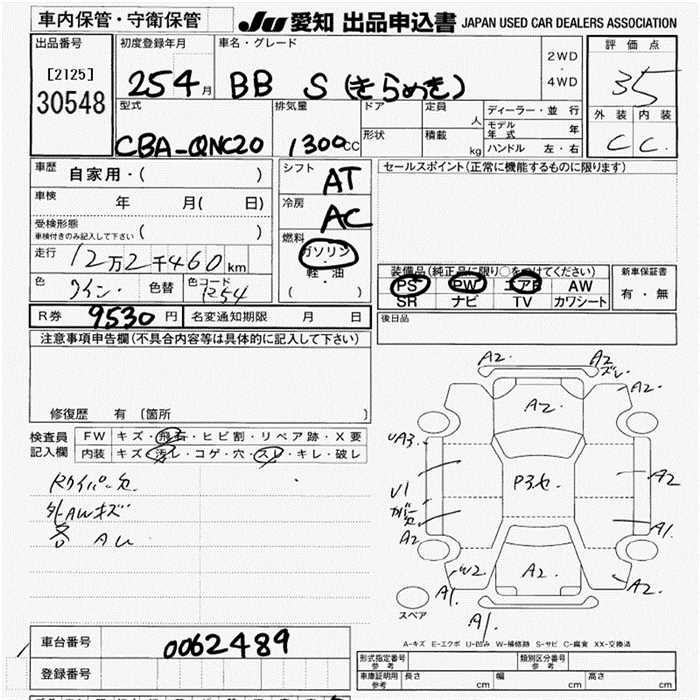 車内保管・守衛保管
JU 愛知 出品申込書 JAPAN USED CAR DEALERS ASSOCIATION
出品番号
[2125]
30548
初度登録年月
25 4 月
車名・グレード
BB S (きらめき)
2WD
・
4WD
評価点
3.5
型式
CBA-QNC20
排気量
1300 CC
ドア
形状
定員
人
積載
kg
ディーラー・並行
モデル年式 年
ハンドル 左・右
外装 内装
C C
車歴
自家用・( )
車検
年 月( 日)
受検形態
車検付きのみ記入して下さい ( )
走行
12万2千460 km
色
ワイン
色替
色コード
R54
シフト
AT
冷房
AC
燃料
ガソリン
・
軽・油
( )
セールスポイント(正常に機能するものに限ります)
装備品(純正品に限り○をつけてください)
PS PW エアB AW
SR ナビ TV カワシート
新車保証書
有・無
R券 9530 円
名変通知期限 月 日
後日品
注意事項申告欄(不具合内容等は具体的に記入して下さい)
修復歴 有 〔箇所 〕
検査員
記入欄
FW キズ・飛石・ヒビ割・リペア跡・X要
内装 キズ・汚レ・コゲ・穴・スレ・キレ・破レ
Rワイパー欠
外AWキズ
A2
A2
ズレ
A2
A2
UA3
P3セ
A2
U1
カバー欠
A2
A1
W2
A2
A2
A1
A1
スペア
A-キズ E-エクボ U-凹み W-補修跡 S-サビ C-腐食 XX-交換済
車台番号
0062489
登録番号
形式指定番号
参考
類別区分番号
参考
車庫証明用
参考
長さ cm 幅 cm 高さ cm